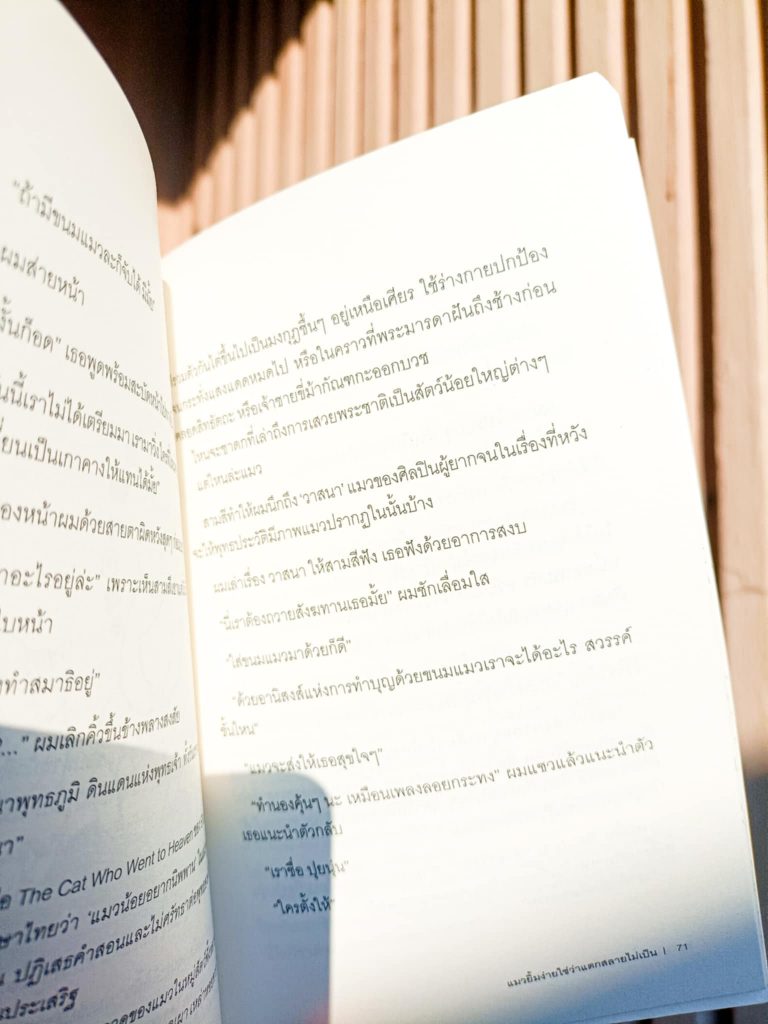 "ถ้ามีขนมแมวละก็จับได้
ผมส่ายหน้า
งั้นก๊อด" เธอพูดพร้อมสะบัด
นนี้เราไม่ได้เตรียมมา
ยนเป็นเกาคางให้แทนได้มั้ย"
องหน้าผมด้วยสายตาผิดหวังสุดๆ
าอะไรอยู่ล่ะ" เพราะเห็นสามสี
ใบหน้า
ทำสมาธิอยู่"
..." ผมเลิกคิ้วขึ้นข้างพลางสงสัย
าพุทธภูมิ ดินแดนแห่งพุทธเจ้า
ยา"
อ The Cat Who Went to Heaven
ษาไทยว่า 'แมวน้อยอยากนิพพาน'
น ปฏิเสธคำสอนและไม่ศรัทธาต่อพุทธ
นประเสริฐ
ของแมวในหมู่สัตว์
ขดตัวกันไต่ขึ้นไปเป็นมงกุฎชื้นๆ อยู่เหนือเศียร ใช้ร่างกายปกป้อง
จนกระทั่งแสงแดดหมดไป หรือในคราวที่พระมารดาฝันถึงช้างก่อน
คลอดสิทธัตถะ หรือเจ้าชายขี่ม้ากัณฑกะออกบวช
ไหนจะชาดกที่เล่าถึงการเสวยพระชาติเป็นสัตว์น้อยใหญ่ต่างๆ
แต่ไหนล่ะแมว
สามสีทำให้ผมนึกถึง 'วาสนา' แมวของศิลปินผู้ยากจนในเรื่องที่หวัง
จะให้พุทธประวัติมีภาพแมวปรากฏในนั้นบ้าง
ผมเล่าเรื่อง วาสนา ให้สามสีฟัง เธอฟังด้วยอาการสงบ
"นี่เราต้องถวายสังฆทานเธอมั้ย" ผมชักเลื่อมใส
"ใส่ขนมแมวมาด้วยก็ดี"
"ด้วยอานิสงส์แห่งการทำบุญด้วยขนมแมวเราจะได้อะไร สวรรค์
ชั้นไหน"
"แมวจะส่งให้เธอสุขใจๆ"
"ทำนองคุ้นๆ นะ เหมือนเพลงลอยกระทง" ผมแซวแล้วแนะนำตัว
เธอแนะนำตัวกลับ
"เราชื่อ ปุยนุ่น"
"ใครตั้งให้"
แมวยิ้มง่ายใช่ว่าแตกสลายไม่เป็น | 71